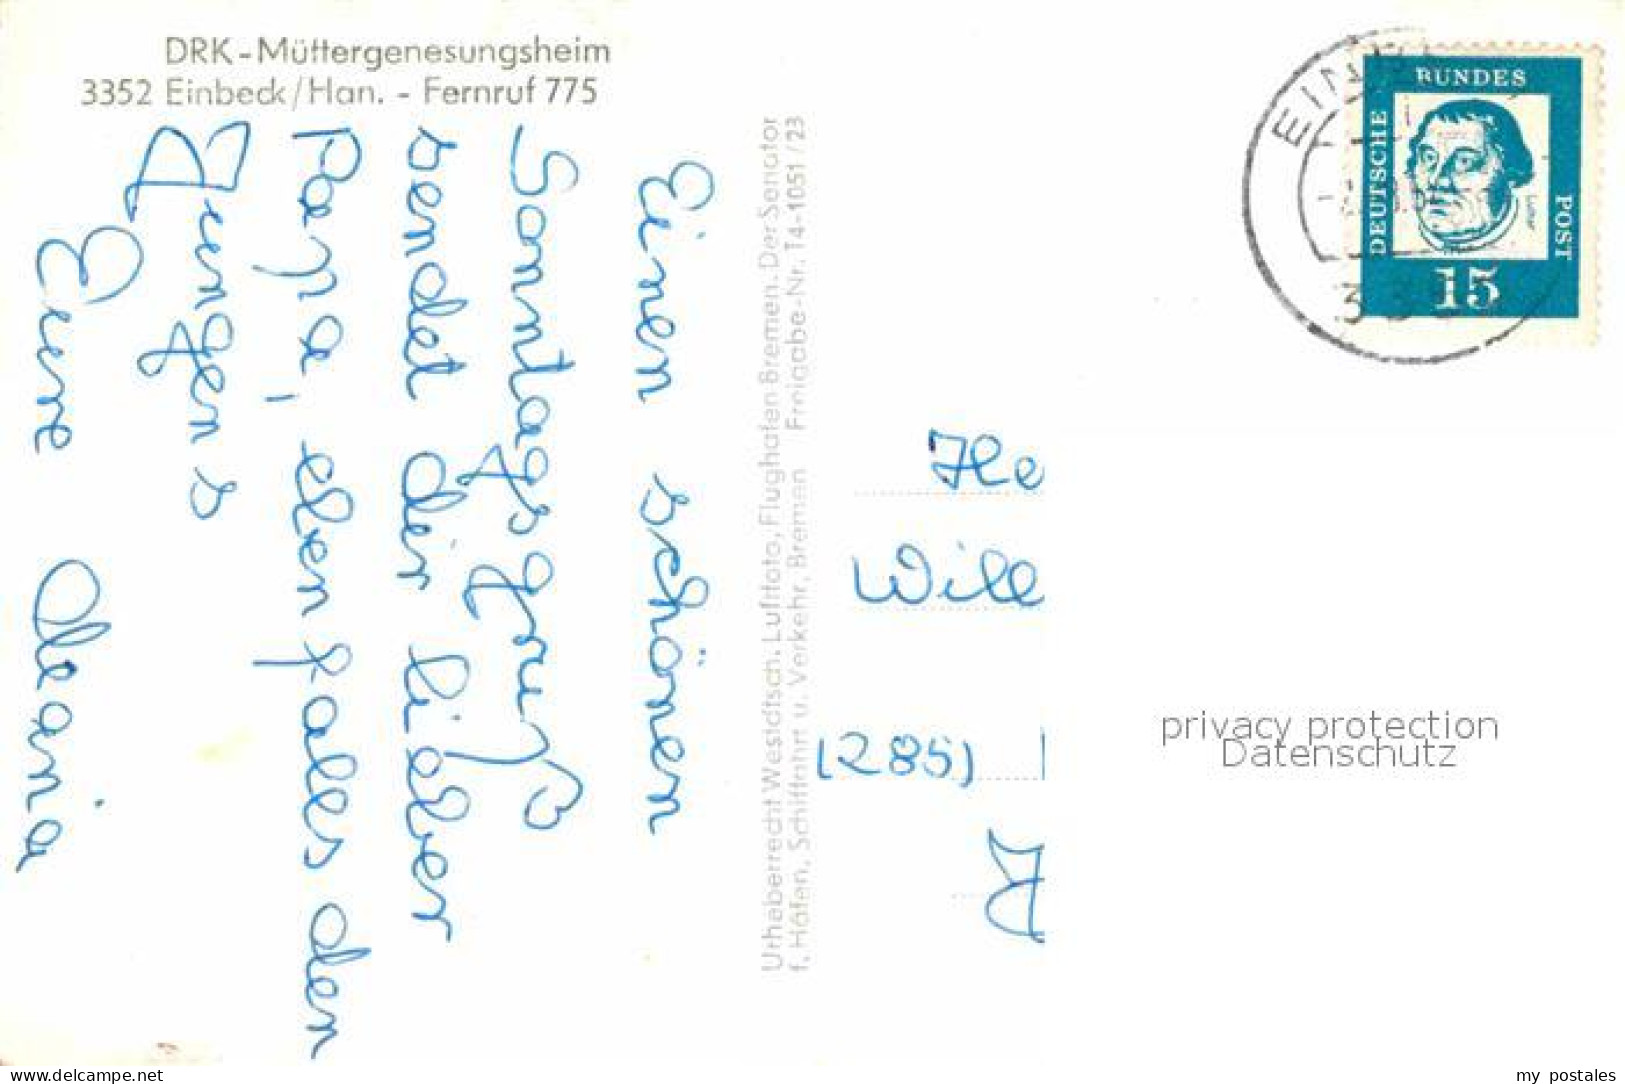 DRK-Müttergenesungsheim
3352 Einbeck/Han. - Fernruf 775
Einen schönen
Sonntagsgruß
sendet dir lieber
Papa, ebenfales den
Jungens
Eure Maria
Urheberrecht Westdtsch. Luftfoto, Flughafen Bremen. Der Senator
f. Häfen, Schiffahrt u. Verkehr, Bremen Freigabe-Nr. T4-1051/23
EINB
3 3
DEUTSCHE
BUNDES
POST
Luther
15
He
Will
(285)
privacy protection
Datenschutz
www.delcampe.net
my_postales